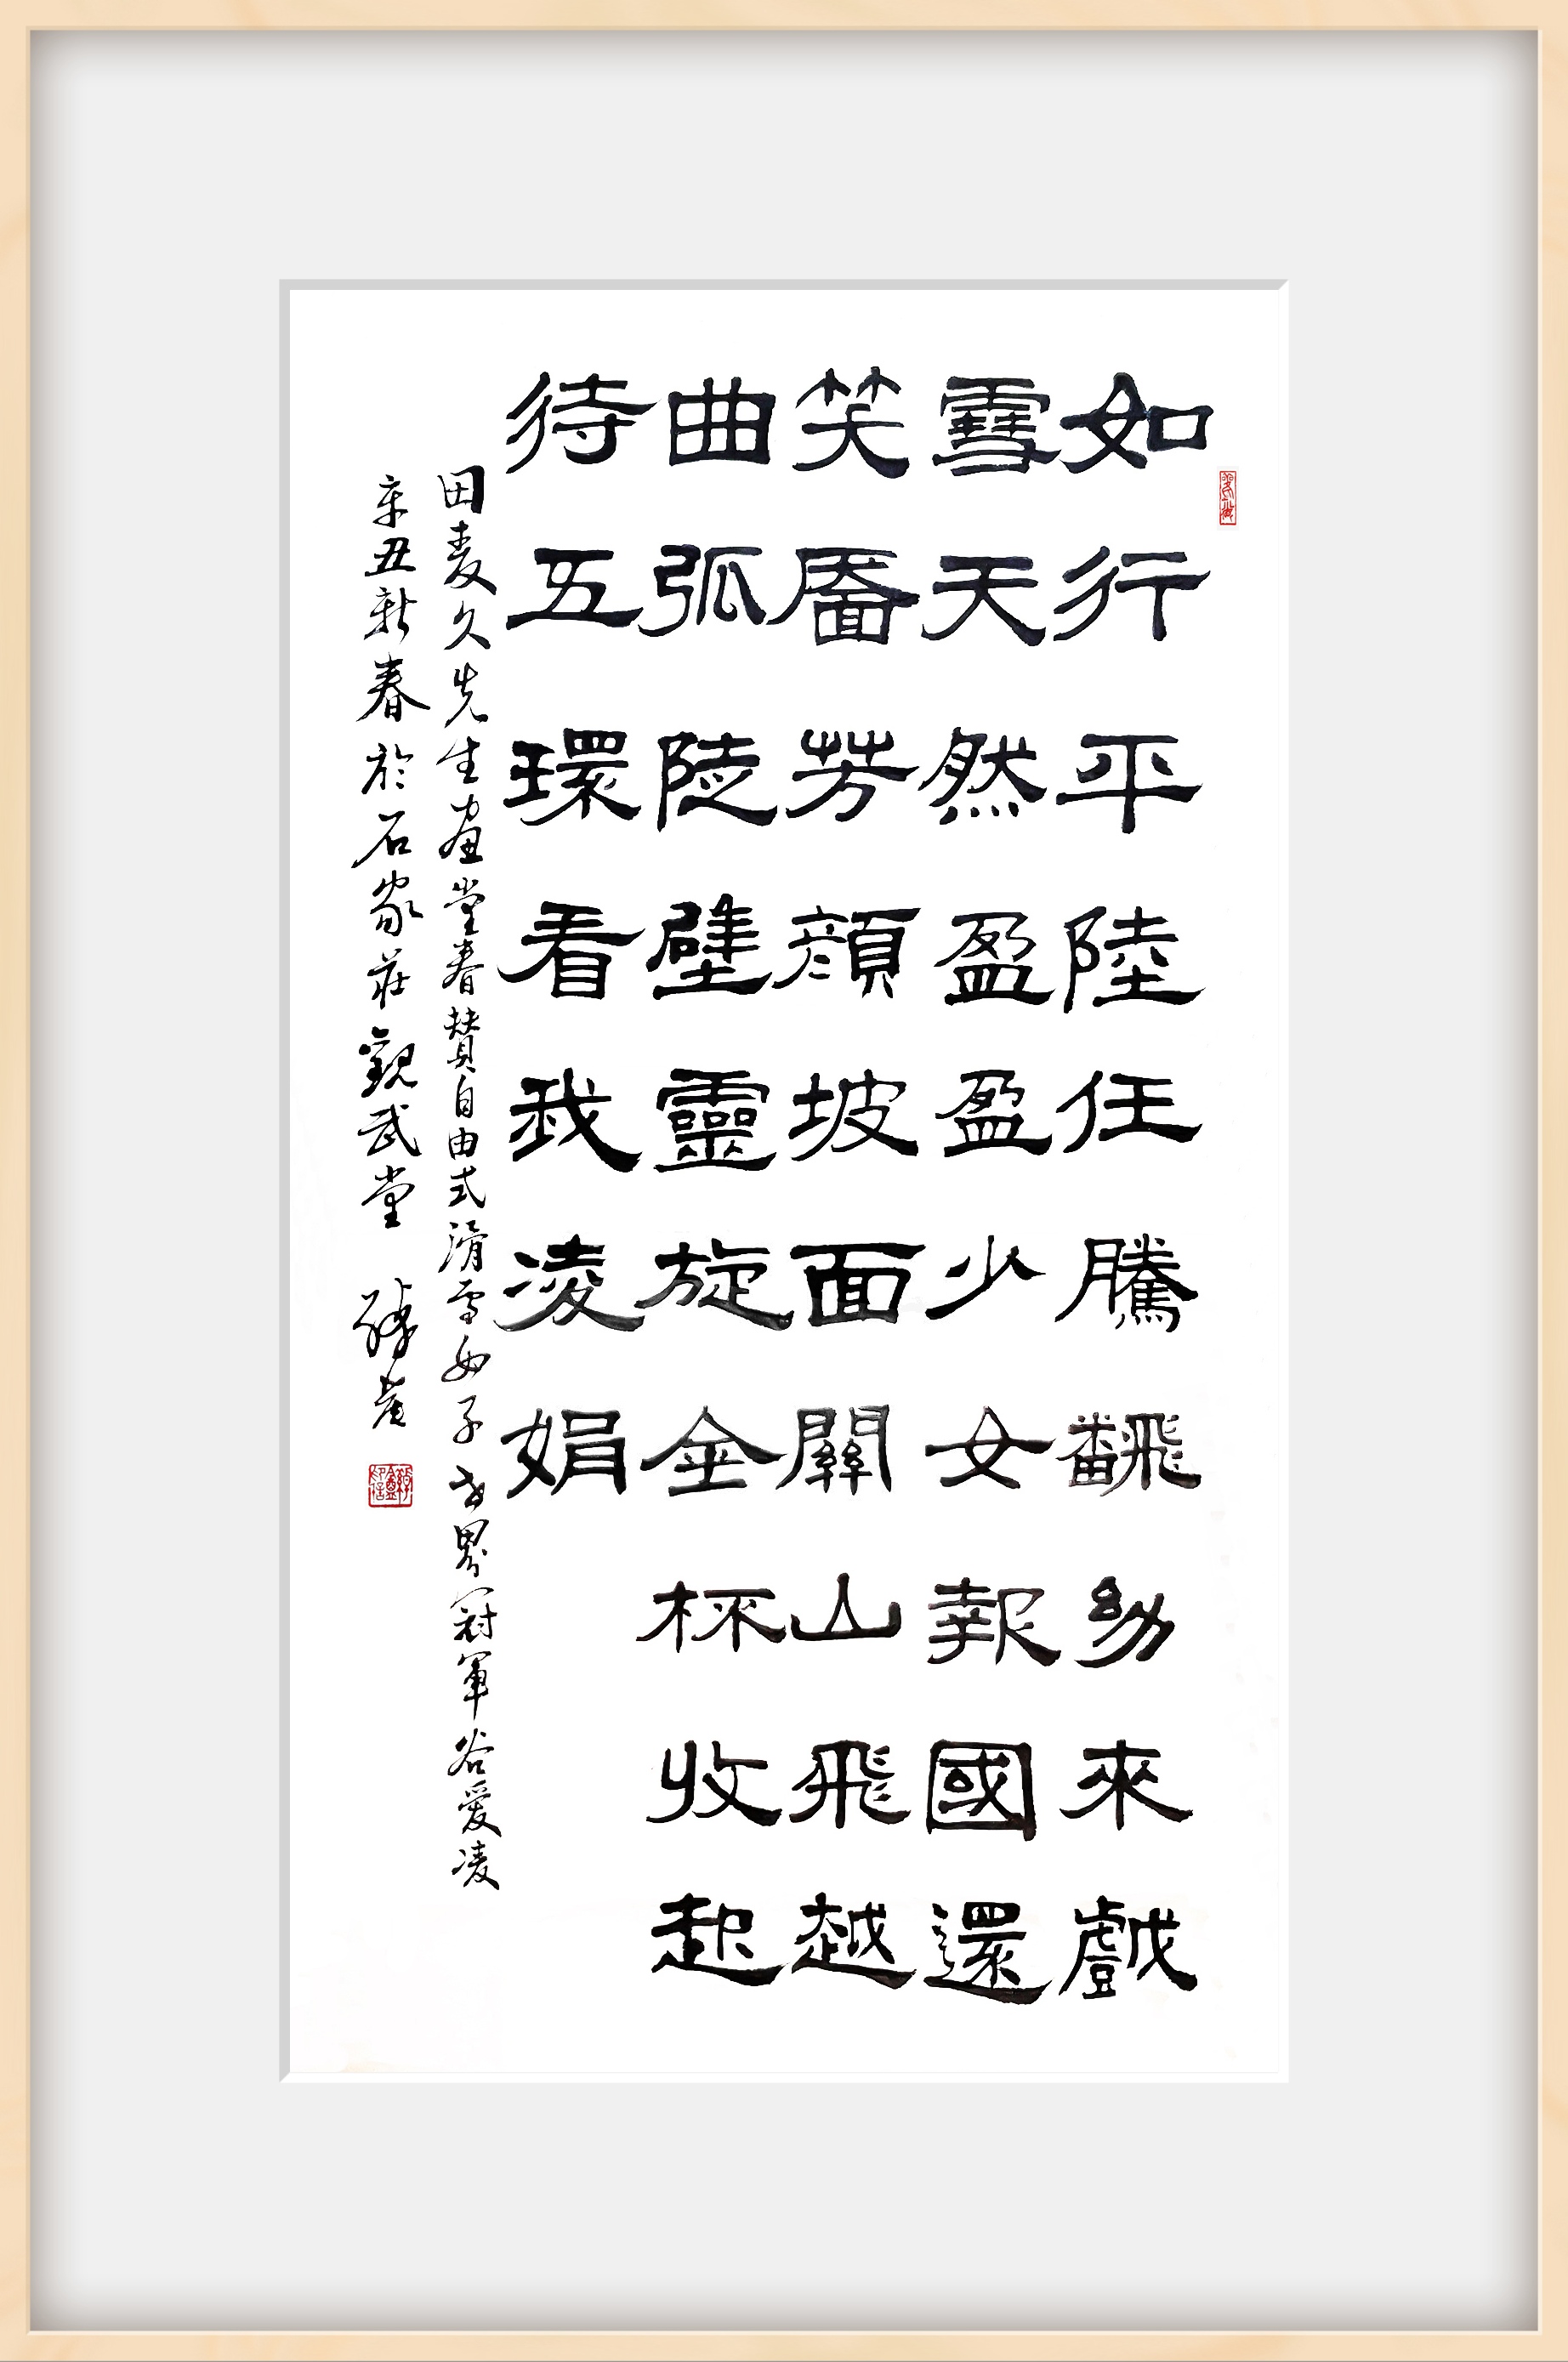 如行平陸任騰飜幼來戲
雪天然盈盈少女報國還
笑靨芳顏坡面關山飛越
曲弧陡壁靈旋金杯收起
待五環看我凌娟
田麦久先生畫堂春賛自由式滑雪女子世界冠軍谷愛凌
辛丑新春於石家莊觀武堂